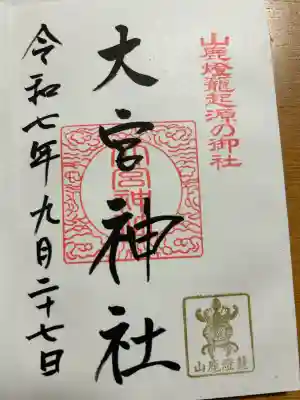 山鹿燈籠起源の御社
大宮神社
大宮神社
令和七年九月二十七日
山鹿燈籠